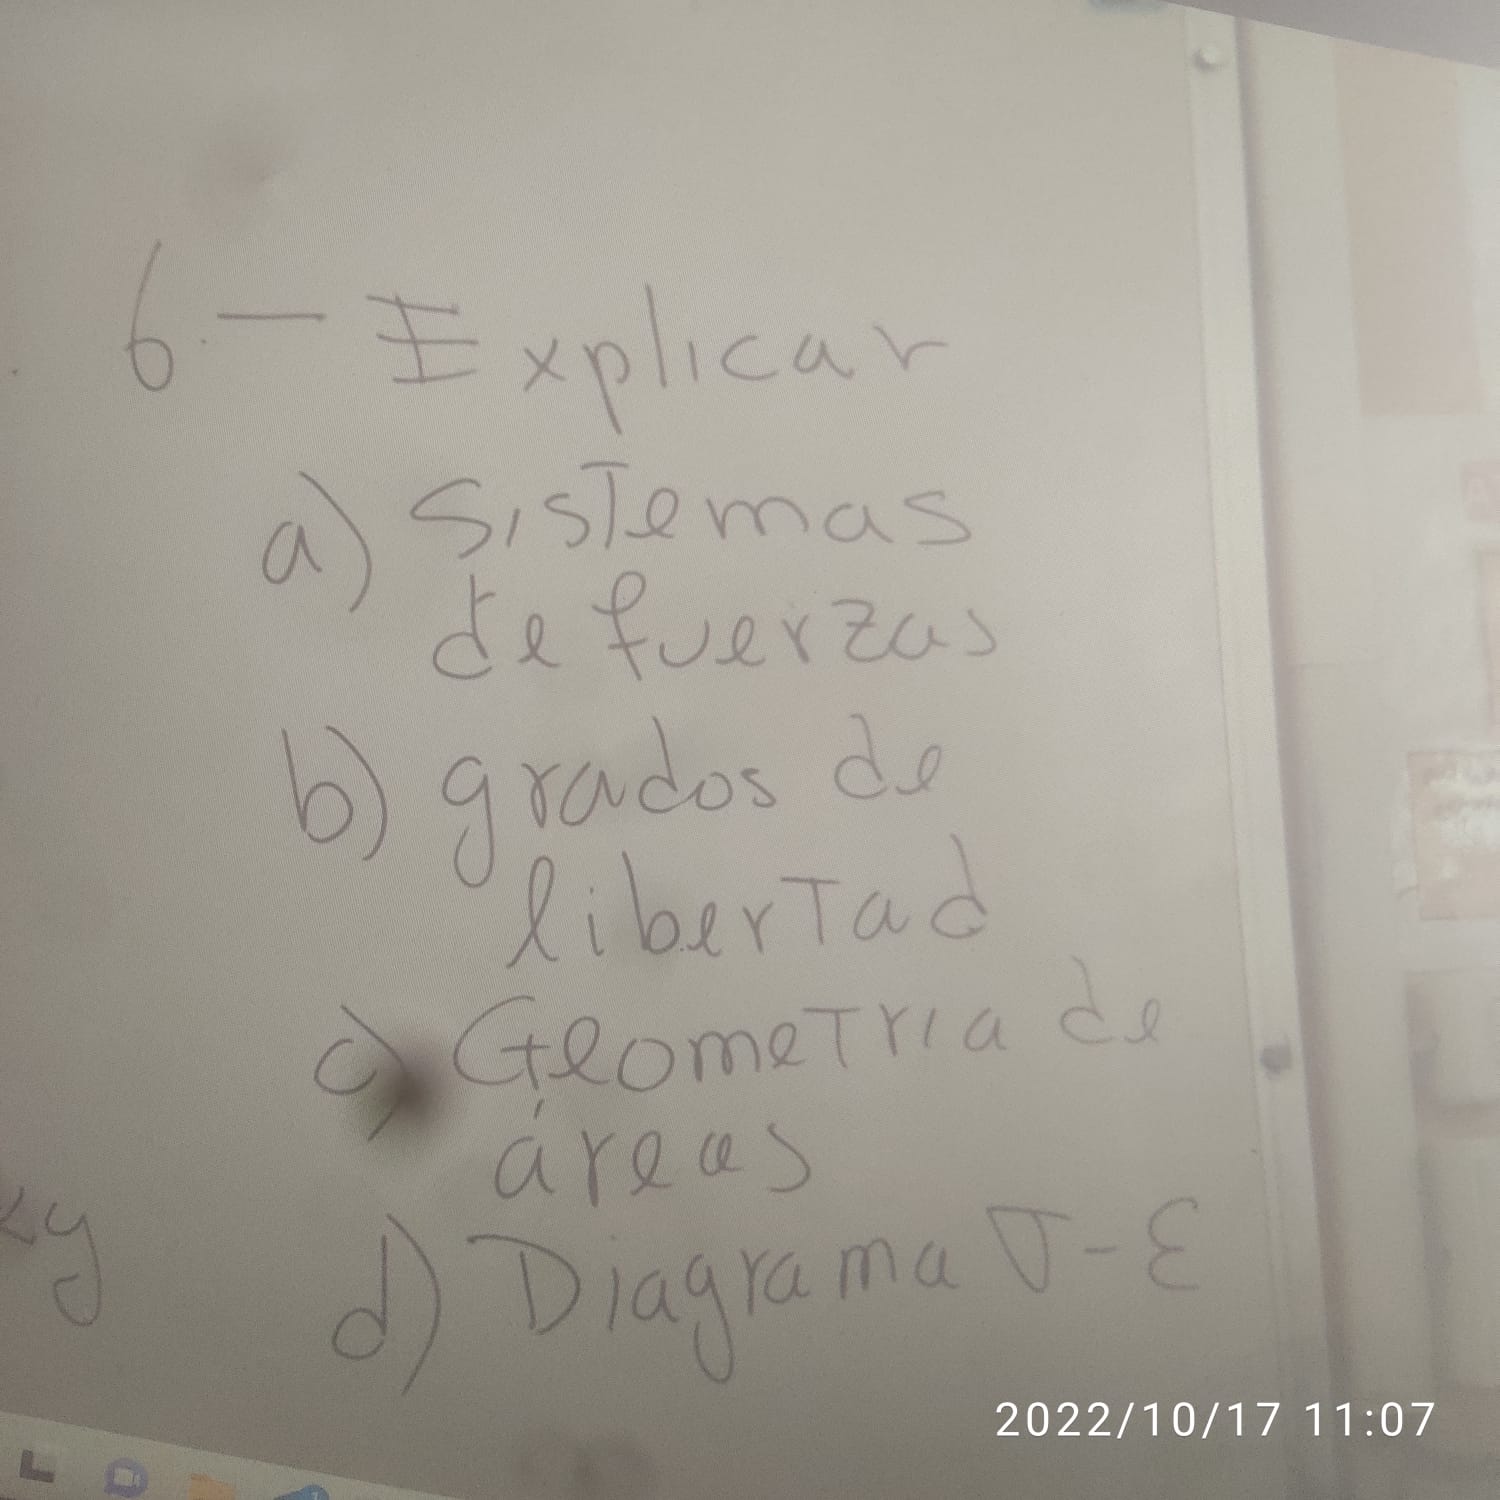 6.- Explicar
a) Sistemas
de fuerzas
b) grados de
libertad
c) Geometria de
áreas
d) Diagrama σ-ε
2022/10/17 11:07